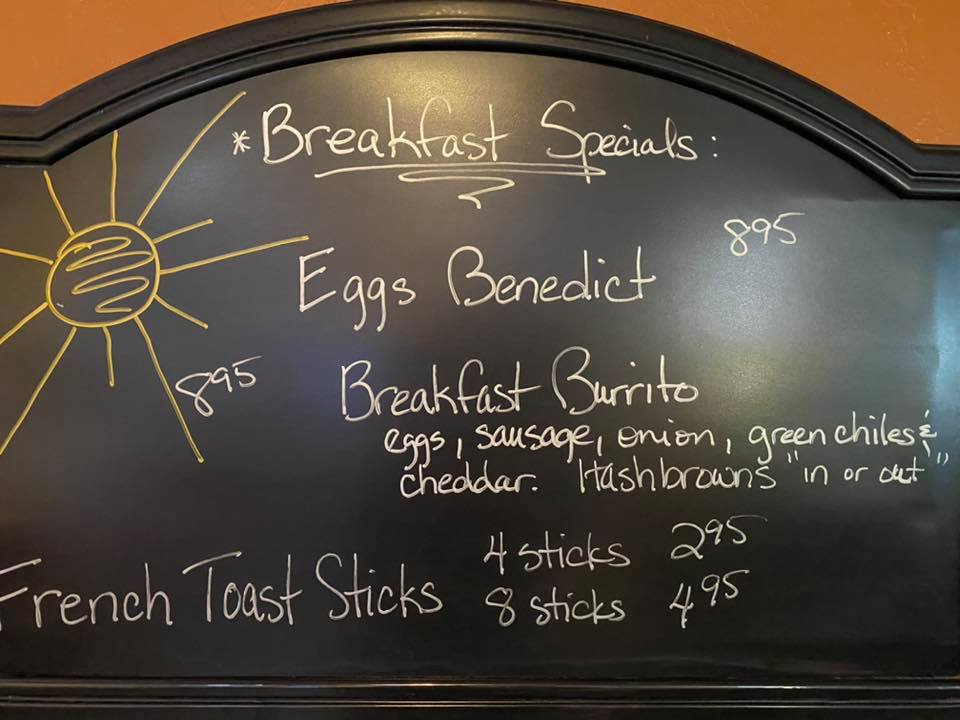 *Breakfast Specials:
Eggs Benedict 8 95
8 95 Breakfast Burrito
eggs, sausage, onion, green chiles &
cheddar. Hashbrowns "in or out"
French Toast Sticks 4 sticks 2 95
8 sticks 4 95